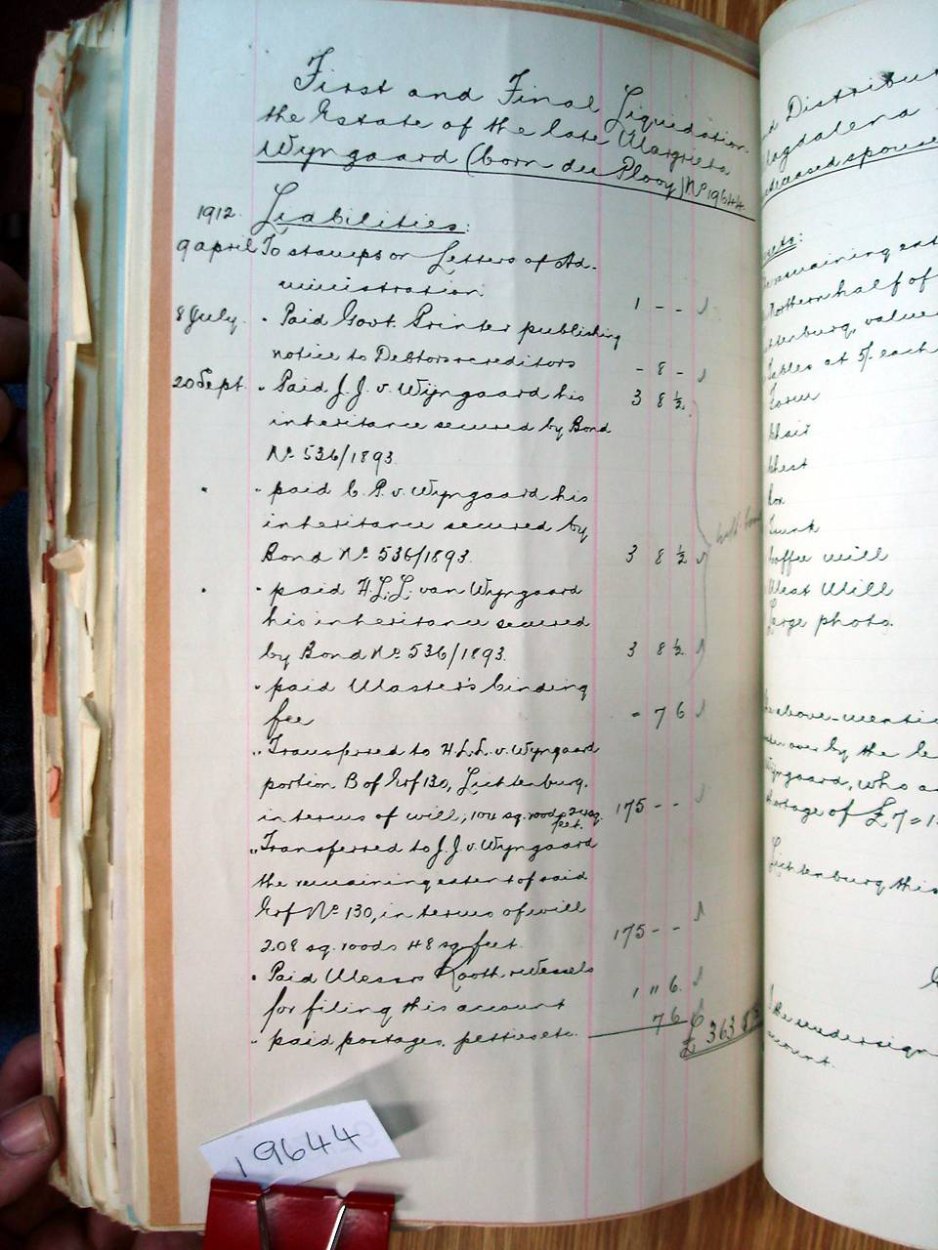 First and Final Liquidation
the Estate of the late Margrieta
Wyngaard (born du Plooy) No 19644
1912. Liabilities:
9 april To stamps on Letters of Ad-
ministration 1 - -
8 July. " Paid Govt. Printer publishing
notice to Debtors & creditors - 8 -
20 Sept. " Paid J.J. v. Wyngaard his 3 8 ½
inheritance secured by Bond
No 536/1893.
" " paid C.P. v. Wyngaard his
inheritance secured by
Bond No 536/1893 3 8 ½
" " paid H.L.L. van Wyngaard
his inheritance secured
by Bond No 536/1893. 3 8 ½
" paid Master's binding
fee - 7 6
" Transferred to H.L.L. v. Wyngaard
portion B of Erf 130, Lichtenburg.
in terms of will, 104 sq. roods 24 sq. feet. 175 - -
" Transferred to J.J. v. Wyngaard
the remaining extent of said
Erf No 130, in terms of will
208 sq. roods 48 sq feet. 175 - -
" Paid Messrs Rooth & Wessels
for filing this account 1 " 6.
" paid postages, petties etc. 7 6
£ 363 8
19644
nd Distribu
Magdalena
deceased spouse
Assets:
remaining ext
Northern half of
Lichtenburg, value
Tables at 5/- each
Chair
Chest
Box
Trunk
Coffee mill
Meat Mill
Large photo.
the above-mentio
taken over by the le
Wyngaard, who a
shortage of £7=1
Lichtenburg this
the undersign
account.